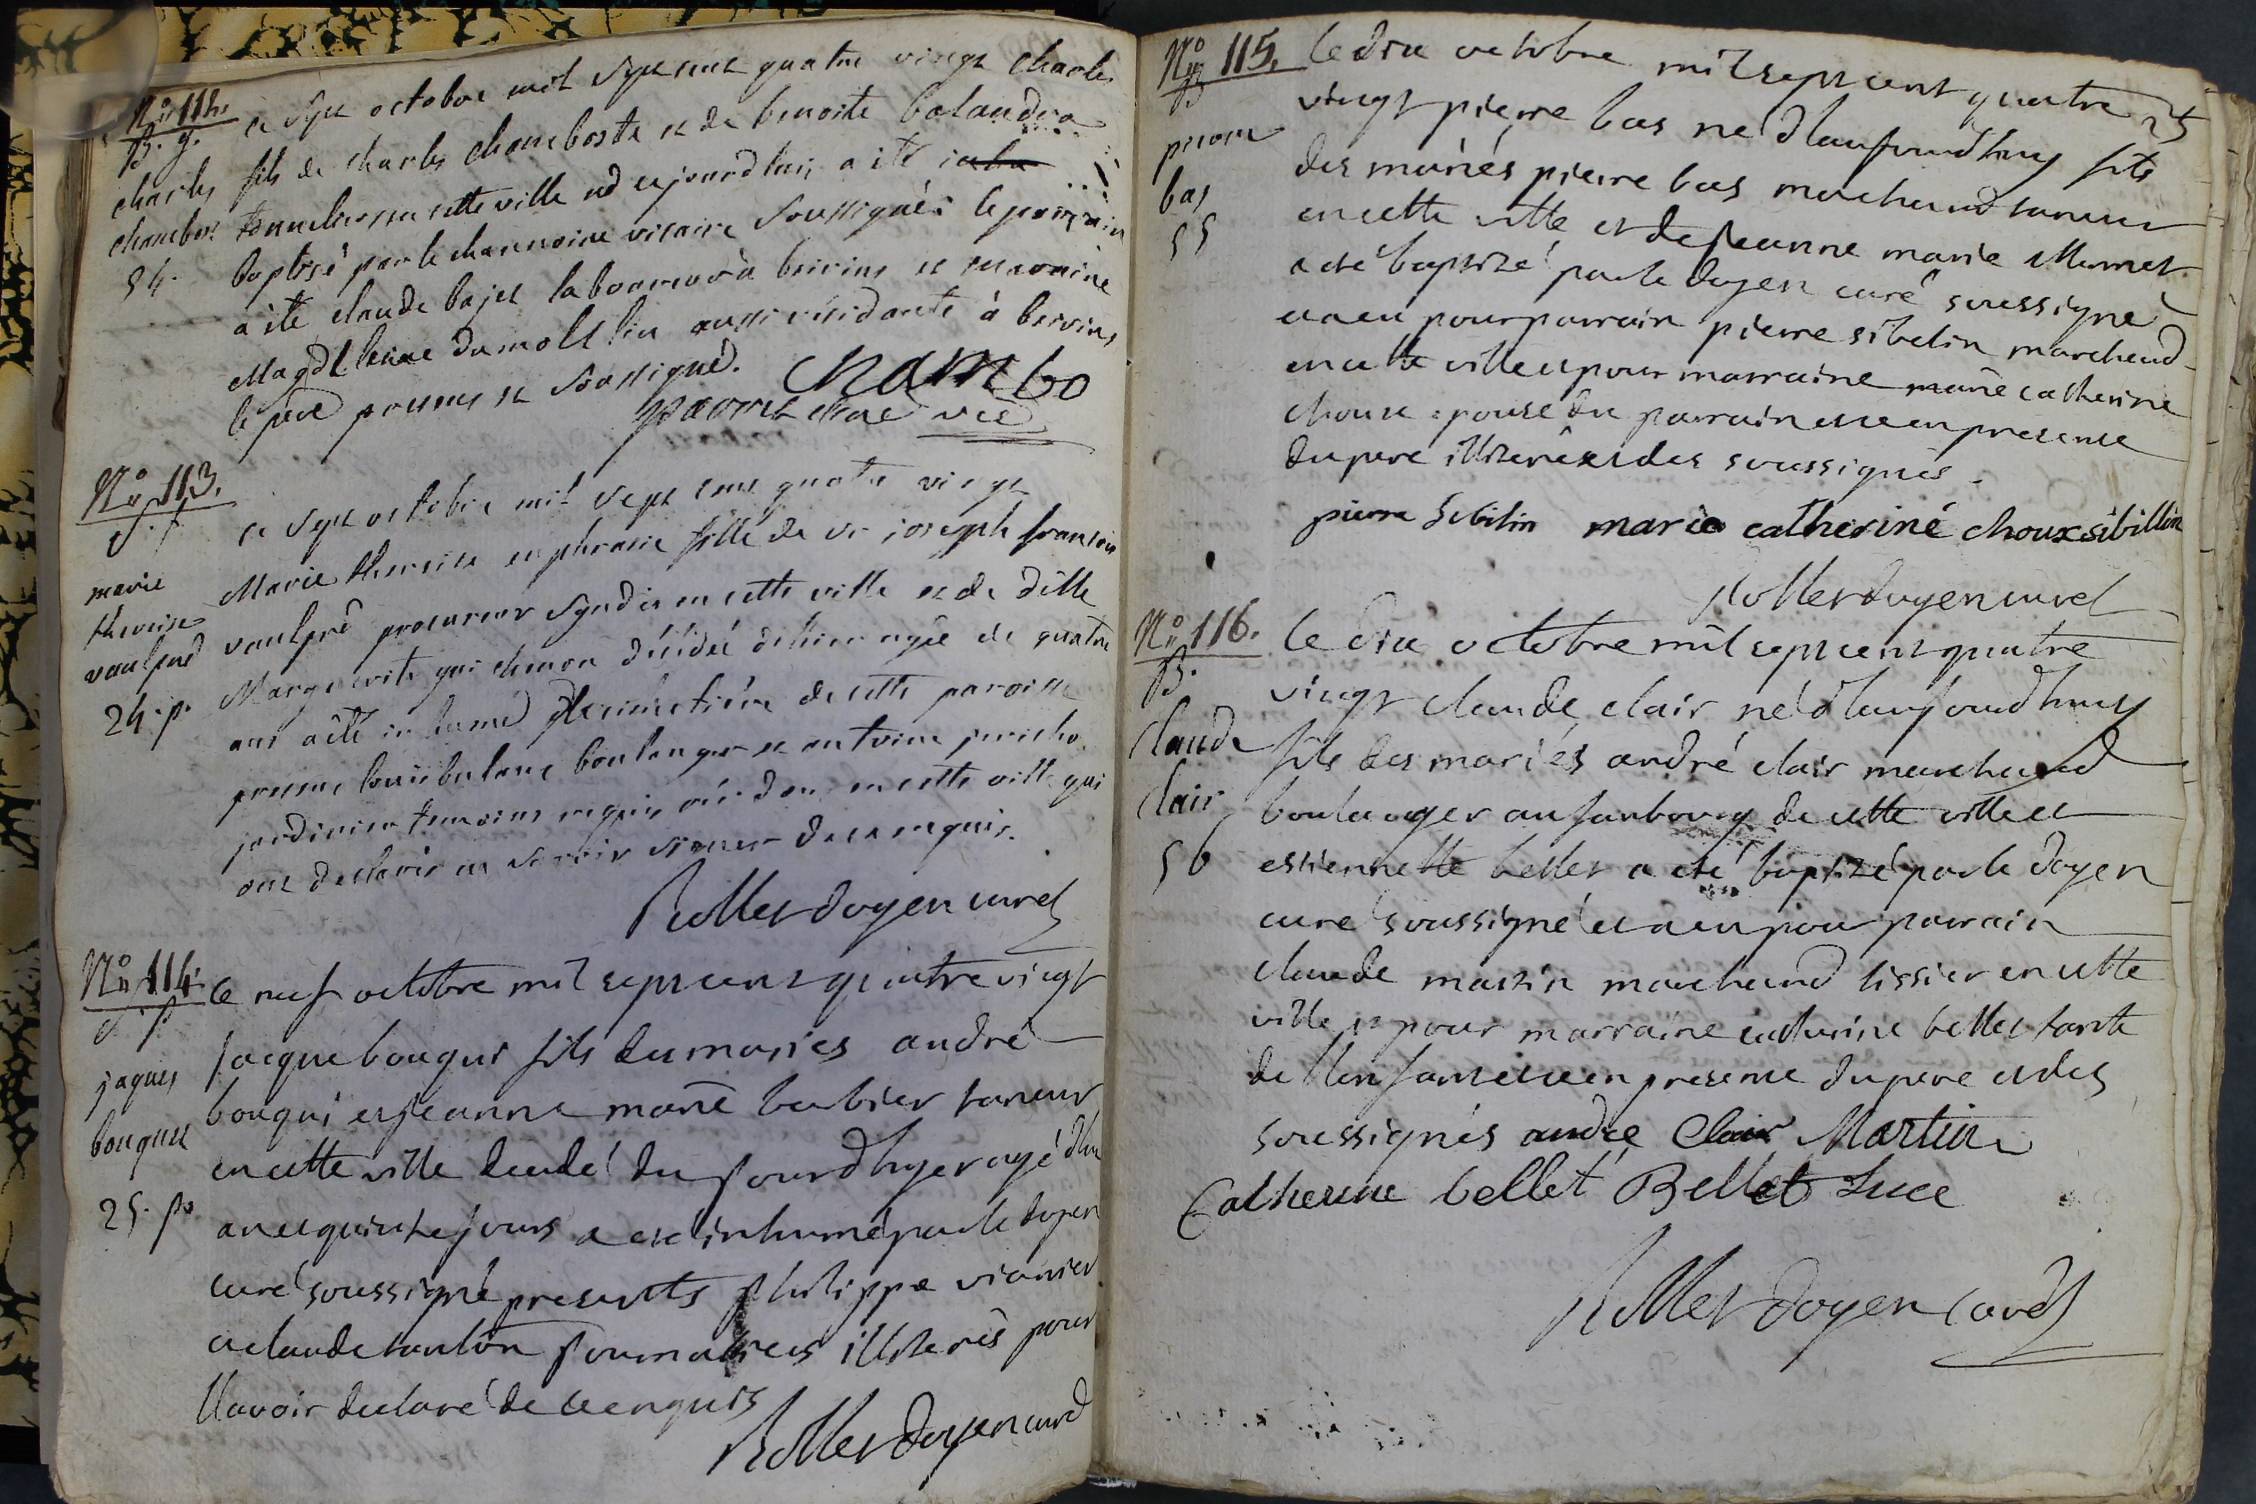 No 112.
B. g.
charles
chambost
54.
ce sept octobre mil sept cent quatre vingt charles
fils de charles chamboste et de benoite balandra
tonnelier en cette ville né ajourd'hui a été
baptisé par le channoine vicaire soussigné: le parrain
a été claude bajet laboureur à et marraine
Magdeleine dumollin aussi résidante à
le père présent et soussigné. Chambo
chne vic
No 113.
marie
therese
vaulpré
24. p.
ce sept octobre mil sept cent quatre vingt
Marie therese euphrasie fille de sr joseph françois
vaulpré procureur syndic en cette ville et de dlle
Marguerite décédée d'hier agée de quatre
ans a été inhumé au cimetière de cette paroisse
présens boulanger et antoine
jardinier temoins requis résidant en cette ville qui
ont déclaré ne savoir signer de ce enquis.
Rollet doyen curé
No 114.
jaques
bouquet
25. p.
Le neuf octobre mil sept cent quatre vingt
Jacque bouqui fils des mariés andré
bouqui et jeanne marie barbier taneur
en cette ville décédé du jour d'hyer agé d'un
an et quinze jours a eté inhumé par le doyen
curé soussigné presents philippe vianier
et claude journaliers illiterés pour
l'avoir declaré de ce enquis
Rollet doyen curé
25
No 115.
B
pierre
bas
55
Le dix octobre mil sept cent quatre
vingt pierre bas né d'laujourd'huy fils
des mariés pierre bas marchand taneur
en cette ville et de jeanne marie
a été baptizé par le doyen curé soussigné
et a eu pour parrain pierre sibelin marchand
en cette ville et pour marraine marie catherine
choux epouse du parrain et ce en presence
du pere illiteré et des soussignés.
pierre Sibilin marie catheriné choux sibillin
Rollet doyen curé
No 116.
B.
Claude
Clair
56
Le dix octobre mil sept cent quatre
vingt claude clair né d'laujourd'huy
fils des mariés andré clair marchand
boulanger au faubourg de cette ville et
estiennette bellet a eté baptizé par le doyen
curé soussigné et a eu pour parrain
claude martin marchand tissier en cette
ville et pour marraine catherine bellet tante
de l'enfant et ce en presence du pere et des
soussignés andre Clair Martin
Catherine bellet Bellet Luce
Rollet doyen curé